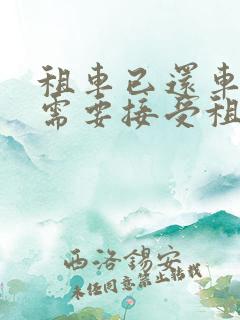 租車已還車
需要接受租
西洛錫安
未经同意禁止转载